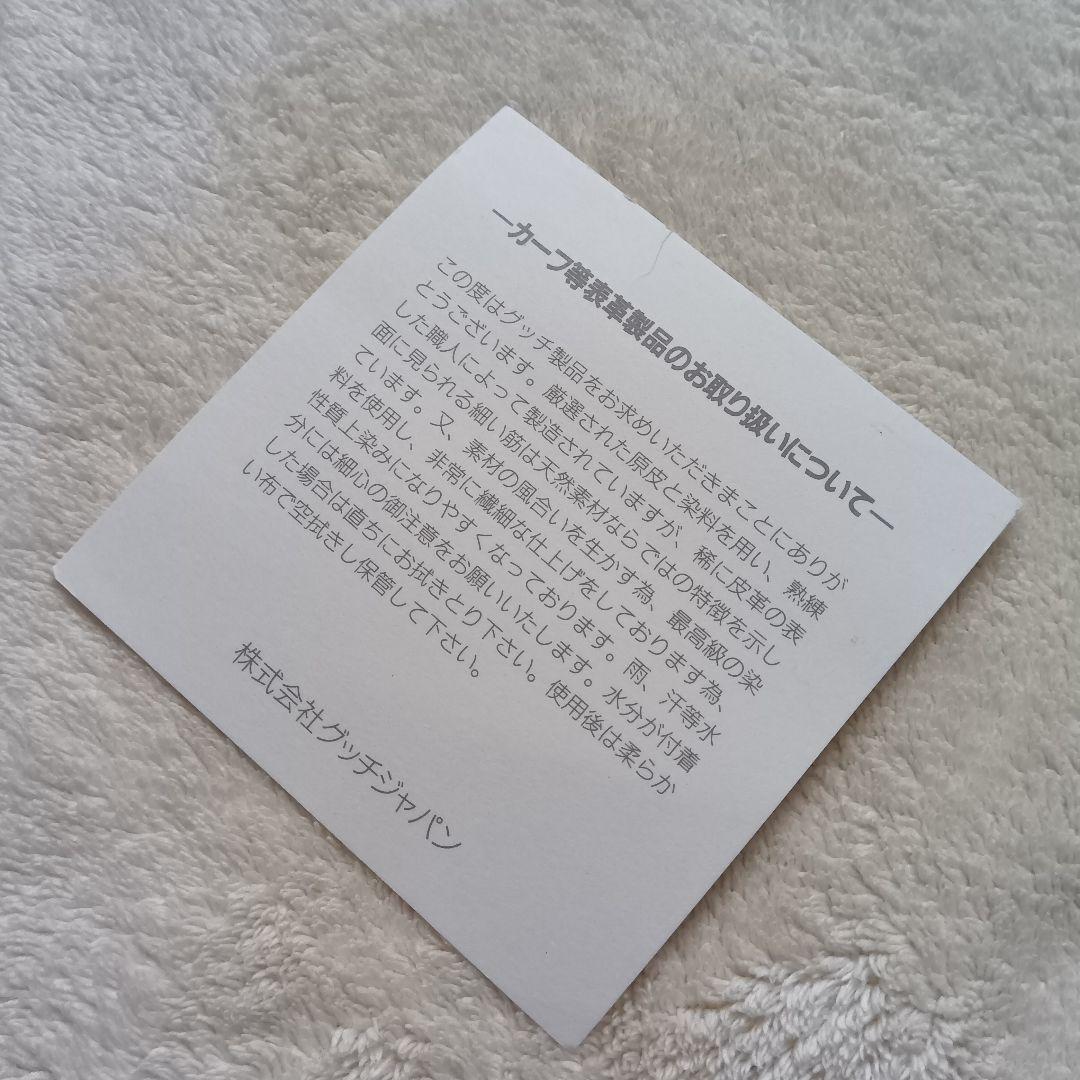 ―カーフ等表革製品のお取り扱いについて―
この度はグッチ製品をお求めいただきまことにありが
とうございます。厳選された原皮と染料を用い、熟練
した職人によって製造されていますが、稀に皮革の表
面に見られる細い筋は天然素材ならではの特徴を示し
ています。又、素材の風合いを生かす為、最高級の染
料を使用し、非常に繊細な仕上げをしております為、
性質上染みになりやすくなっております。雨、汗等水
分には細心の御注意をお願いいたします。水分が付着
した場合は直ちにお拭きとり下さい。使用後は柔らか
い布で空拭きし保管して下さい。
株式会社グッチジャパン